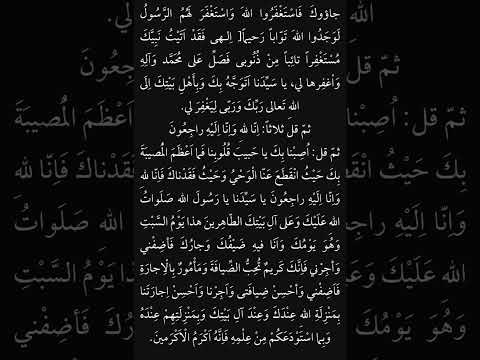 جاؤوكَ فَاسْتَغْفَرُوا اللهَ وَاسْتَغْفَرَ لَهُمُ الرَّسُولُ
لَوَجَدُوا اللهَ تَوّاباً رَحيماً] اِلـهى فَقَدْ اَتَيْتُ نَبِيَّكَ
مُسْتَغْفِراً تائِباً مِنْ ذُنُوبى فَصَلِّ عَلى مُحَمَّد وَآلِهِ
وَاْغفِرها لي، يا سَيِّدَنا اَتَوَجَّهُ بِكَ وَبِاَهْلِ بَيْتِكَ اِلَى
اللهِ تَعالى رَبِّكَ وَرَبّى لِيَغْفِرَ لي.
ثمّ قلْ ثلاثاً: اِنّا للهِ وَاِنّا اِلَيْهِ راجِعُونَ
ثمّ قل: اُصِبْنا بِكَ يا حَبيبَ قُلُوبِنا فَما اَعْظَمَ الْمُصيبَةَ
بِكَ حَيْثُ انْقَطَعَ عَنّا الْوَحْيُ وَحَيْثُ فَقَدْناكَ فَاِنّا للهِ
وَاِنّا اِلَيْهِ راجِعُونَ يا سَيِّدَنا يا رَسُولَ اللهِ صَلَواتُ
اللهِ عَلَيْكَ وَعَلى آلِ بَيْتِكَ الطّاهِرينَ هذا يَوْمُ السَّبْتِ
وَهُوَ يَوْمُكَ وَاَنَا فيهِ ضَيْفُكَ وَجارُكَ فَاَضِفْنى
وَاَجِرْنى فَاِنَّكَ كَريمٌ تُحِبُّ الضِّيافَةَ وَمَأْمُورٌ بِالْاِجارَةِ
فَاَضِفْني وَاَحْسِنْ ضِيافَتى وَاَجِرْنا وَاَحْسِنْ اِجارَتَنا
بِمَنْزِلَةِ اللهِ عِنْدَكَ وَعِنْدَ آلِ بَيْتِكَ وَبِمَنْزِلَتِهِمْ عِنْدَهُ
وَبِما اسْتَوْدَعَكُمْ مِنْ عِلْمِهِ فَاِنَّهُ اَكْرَمُ الْاَكْرَمينَ.